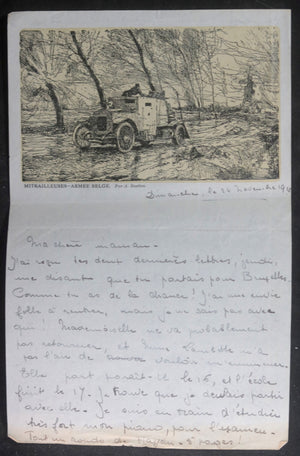 MITRAILLEUSES-ARMÉE BELGE. Par A. Bastien
Dimanche, le 24 novembre 19
Ma chère maman.
J'ai reçu tes deux dernières lettres, jeudi,
me disant que tu partais pour Bruxelles.
Comme tu as de la chance! J'ai une envie
folle à rentrer, mais je ne sais pas avec
qui! Mademoiselle ne va probablement
pas retourner, et Mme n'a
pas l'air de vouloir m'emmener.
Elle part paraît-il le 16, et l'école
finit le 17. Je trouve que je devrais partir
avec elle. Je suis en train d'étudier
très fort mon piano, pour l'examen.
Tout un rondo de 8 pages!